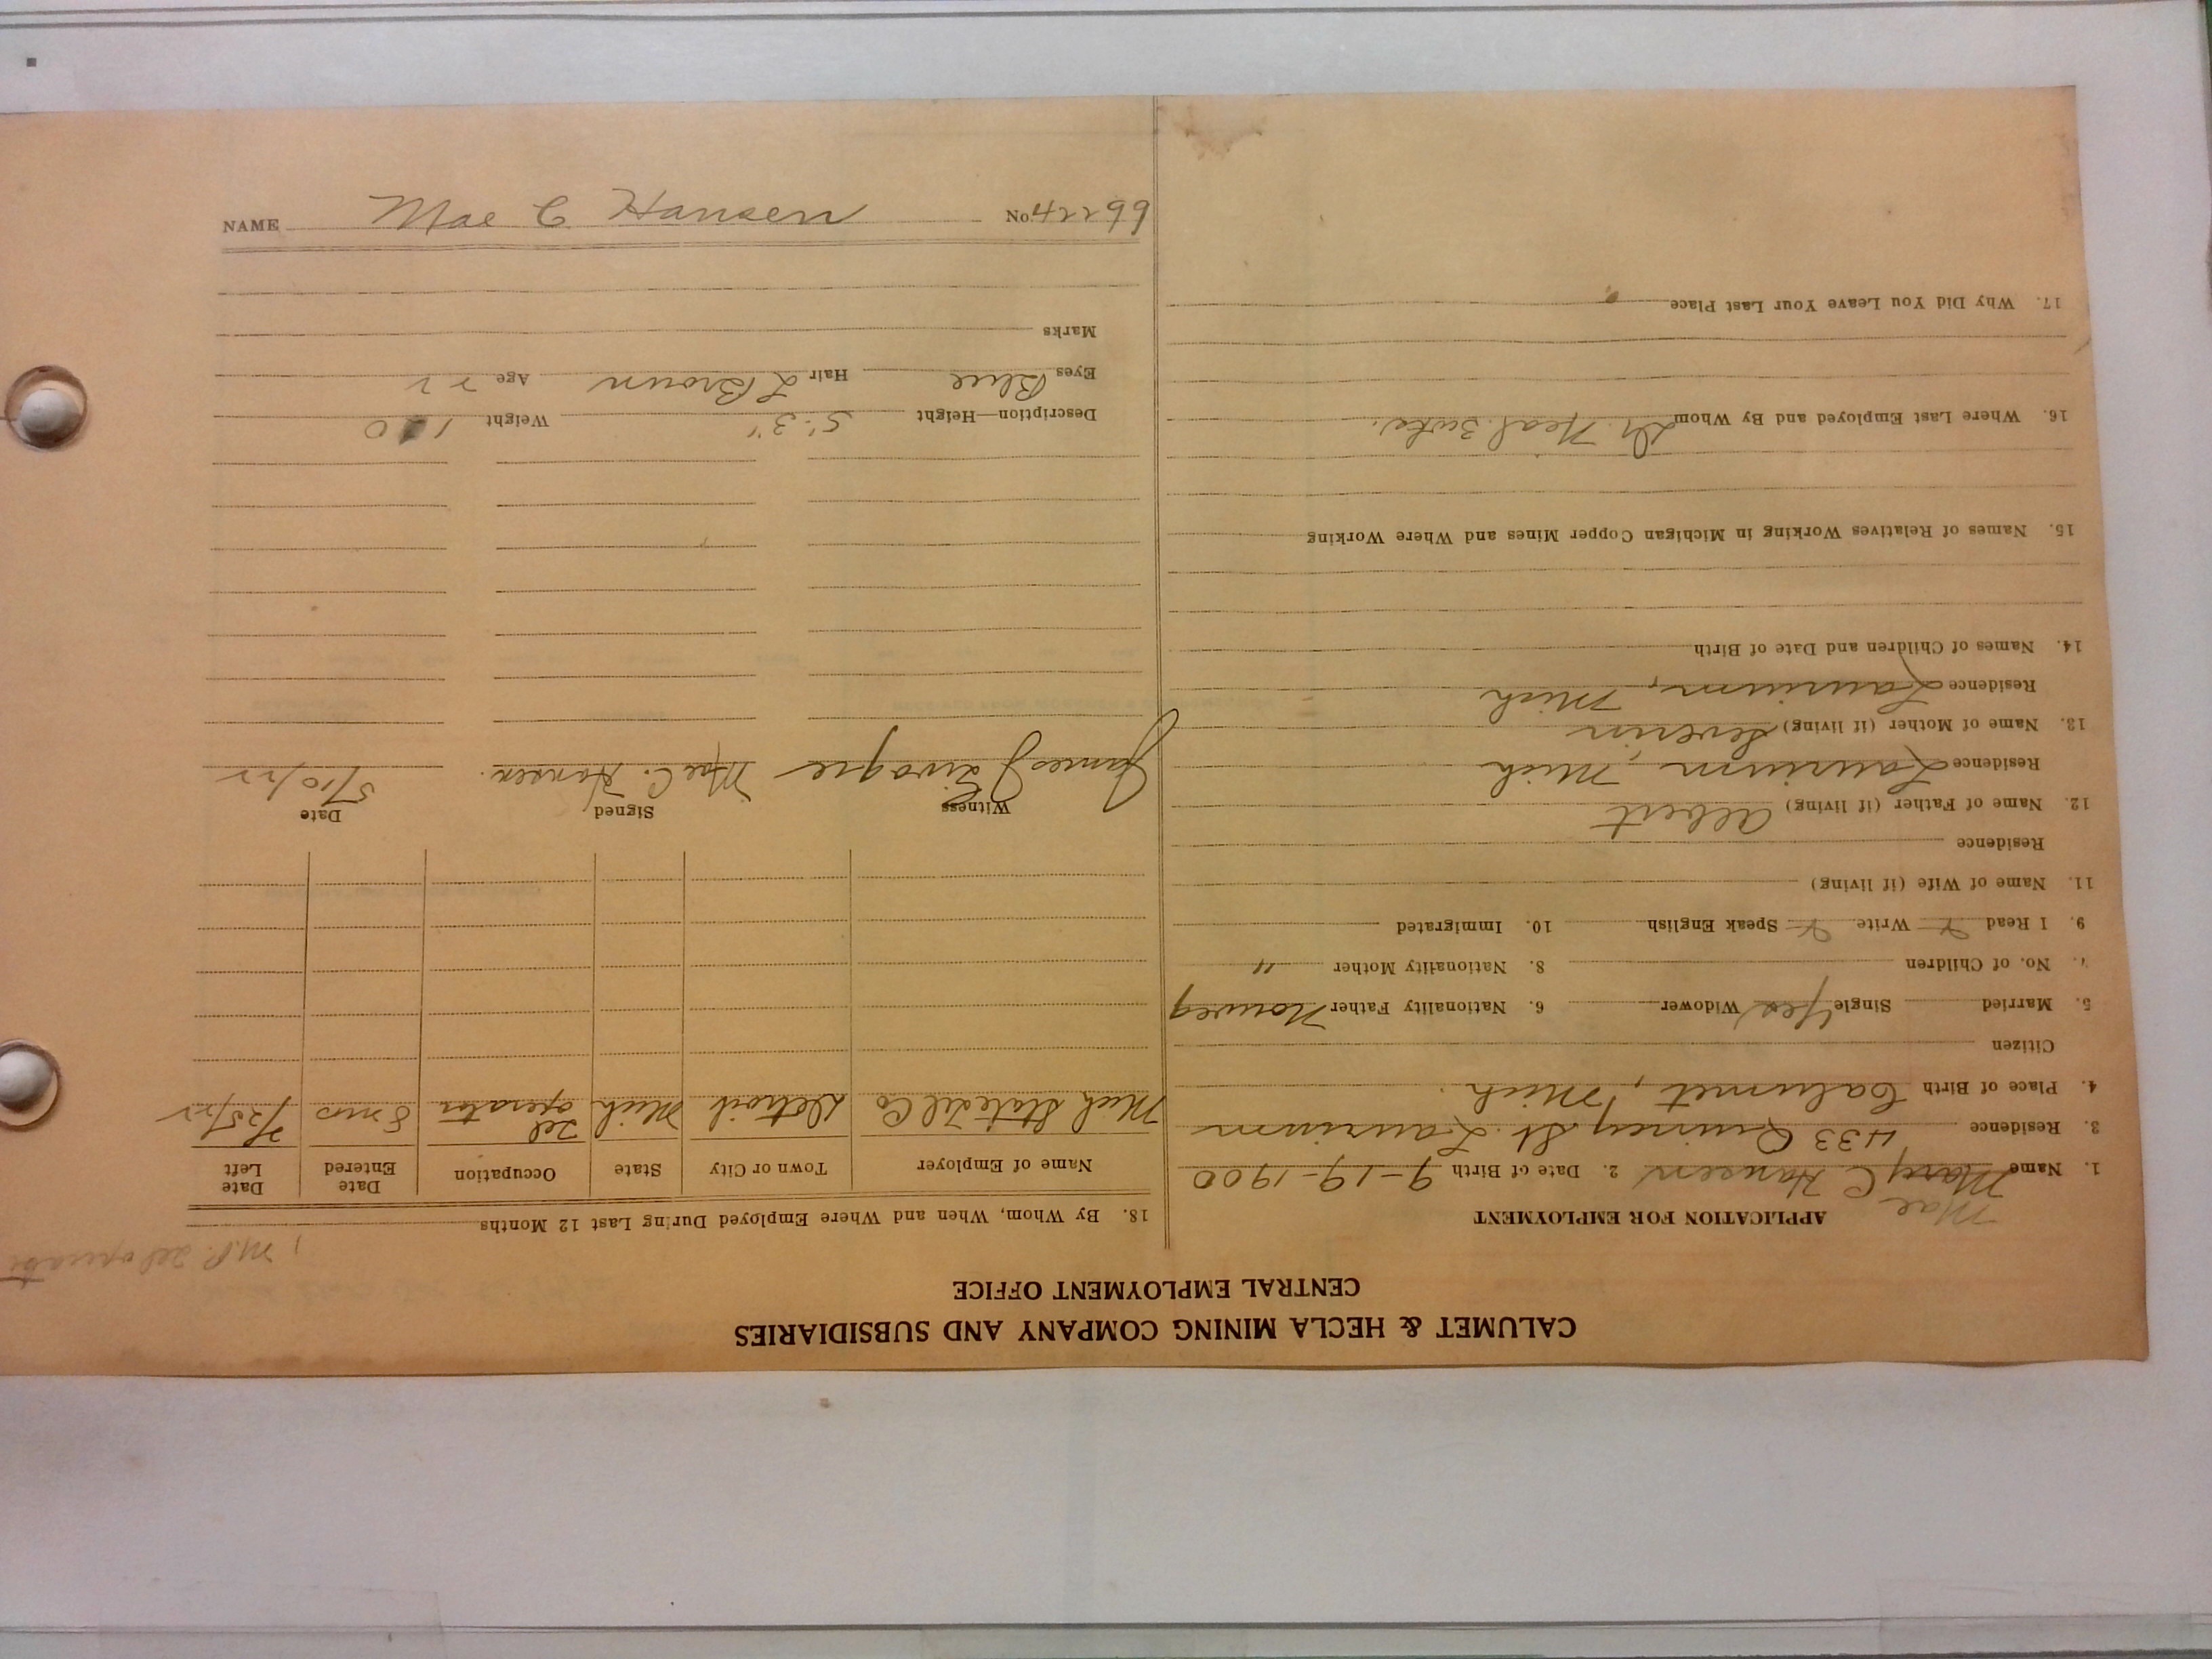 CALUMET & HECLA MINING COMPANY AND SUBSIDIARIES
CENTRAL EMPLOYMENT OFFICE
APPLICATION FOR EMPLOYMENT
Mae
1. Name Mary C Hansen 2. Date of Birth 9-19-1900
3. Residence 433 Quincy St. Laurium
4. Place of Birth Calumet, Mich.
Citizen
5. Married Single Yes Widower 6. Nationality Father Norweg
7. No. of Children 8. Nationality Mother "
9. I Read Write Speak English 10. Immigrated
11. Name of Wife (if living)
Residence
12. Name of Father (if living) Albert
Residence Laurium, Mich
13. Name of Mother (if living) Severin
Residence Laurium, Mich
14. Names of Children and Date of Birth
15. Names of Relatives Working in Michigan Copper Mines and Where Working
16. Where Last Employed and By Whom
17. Why Did You Leave Your Last Place
1 M.P. Tel operator
18. By Whom, When and Where Employed During Last 12 Months
Name of Employer Town or City State Occupation Date Entered Date Left
Mich State Tel Co Detroit Mich Tel operator 8 mos /25/22
Witness Signed Date
James J Mae C. Hansen. 5/10/22
Description—Height 5'.3" Weight
Eyes Blue Hair L Brown Age 22
Marks
NAME Mae C Hansen No. 42299